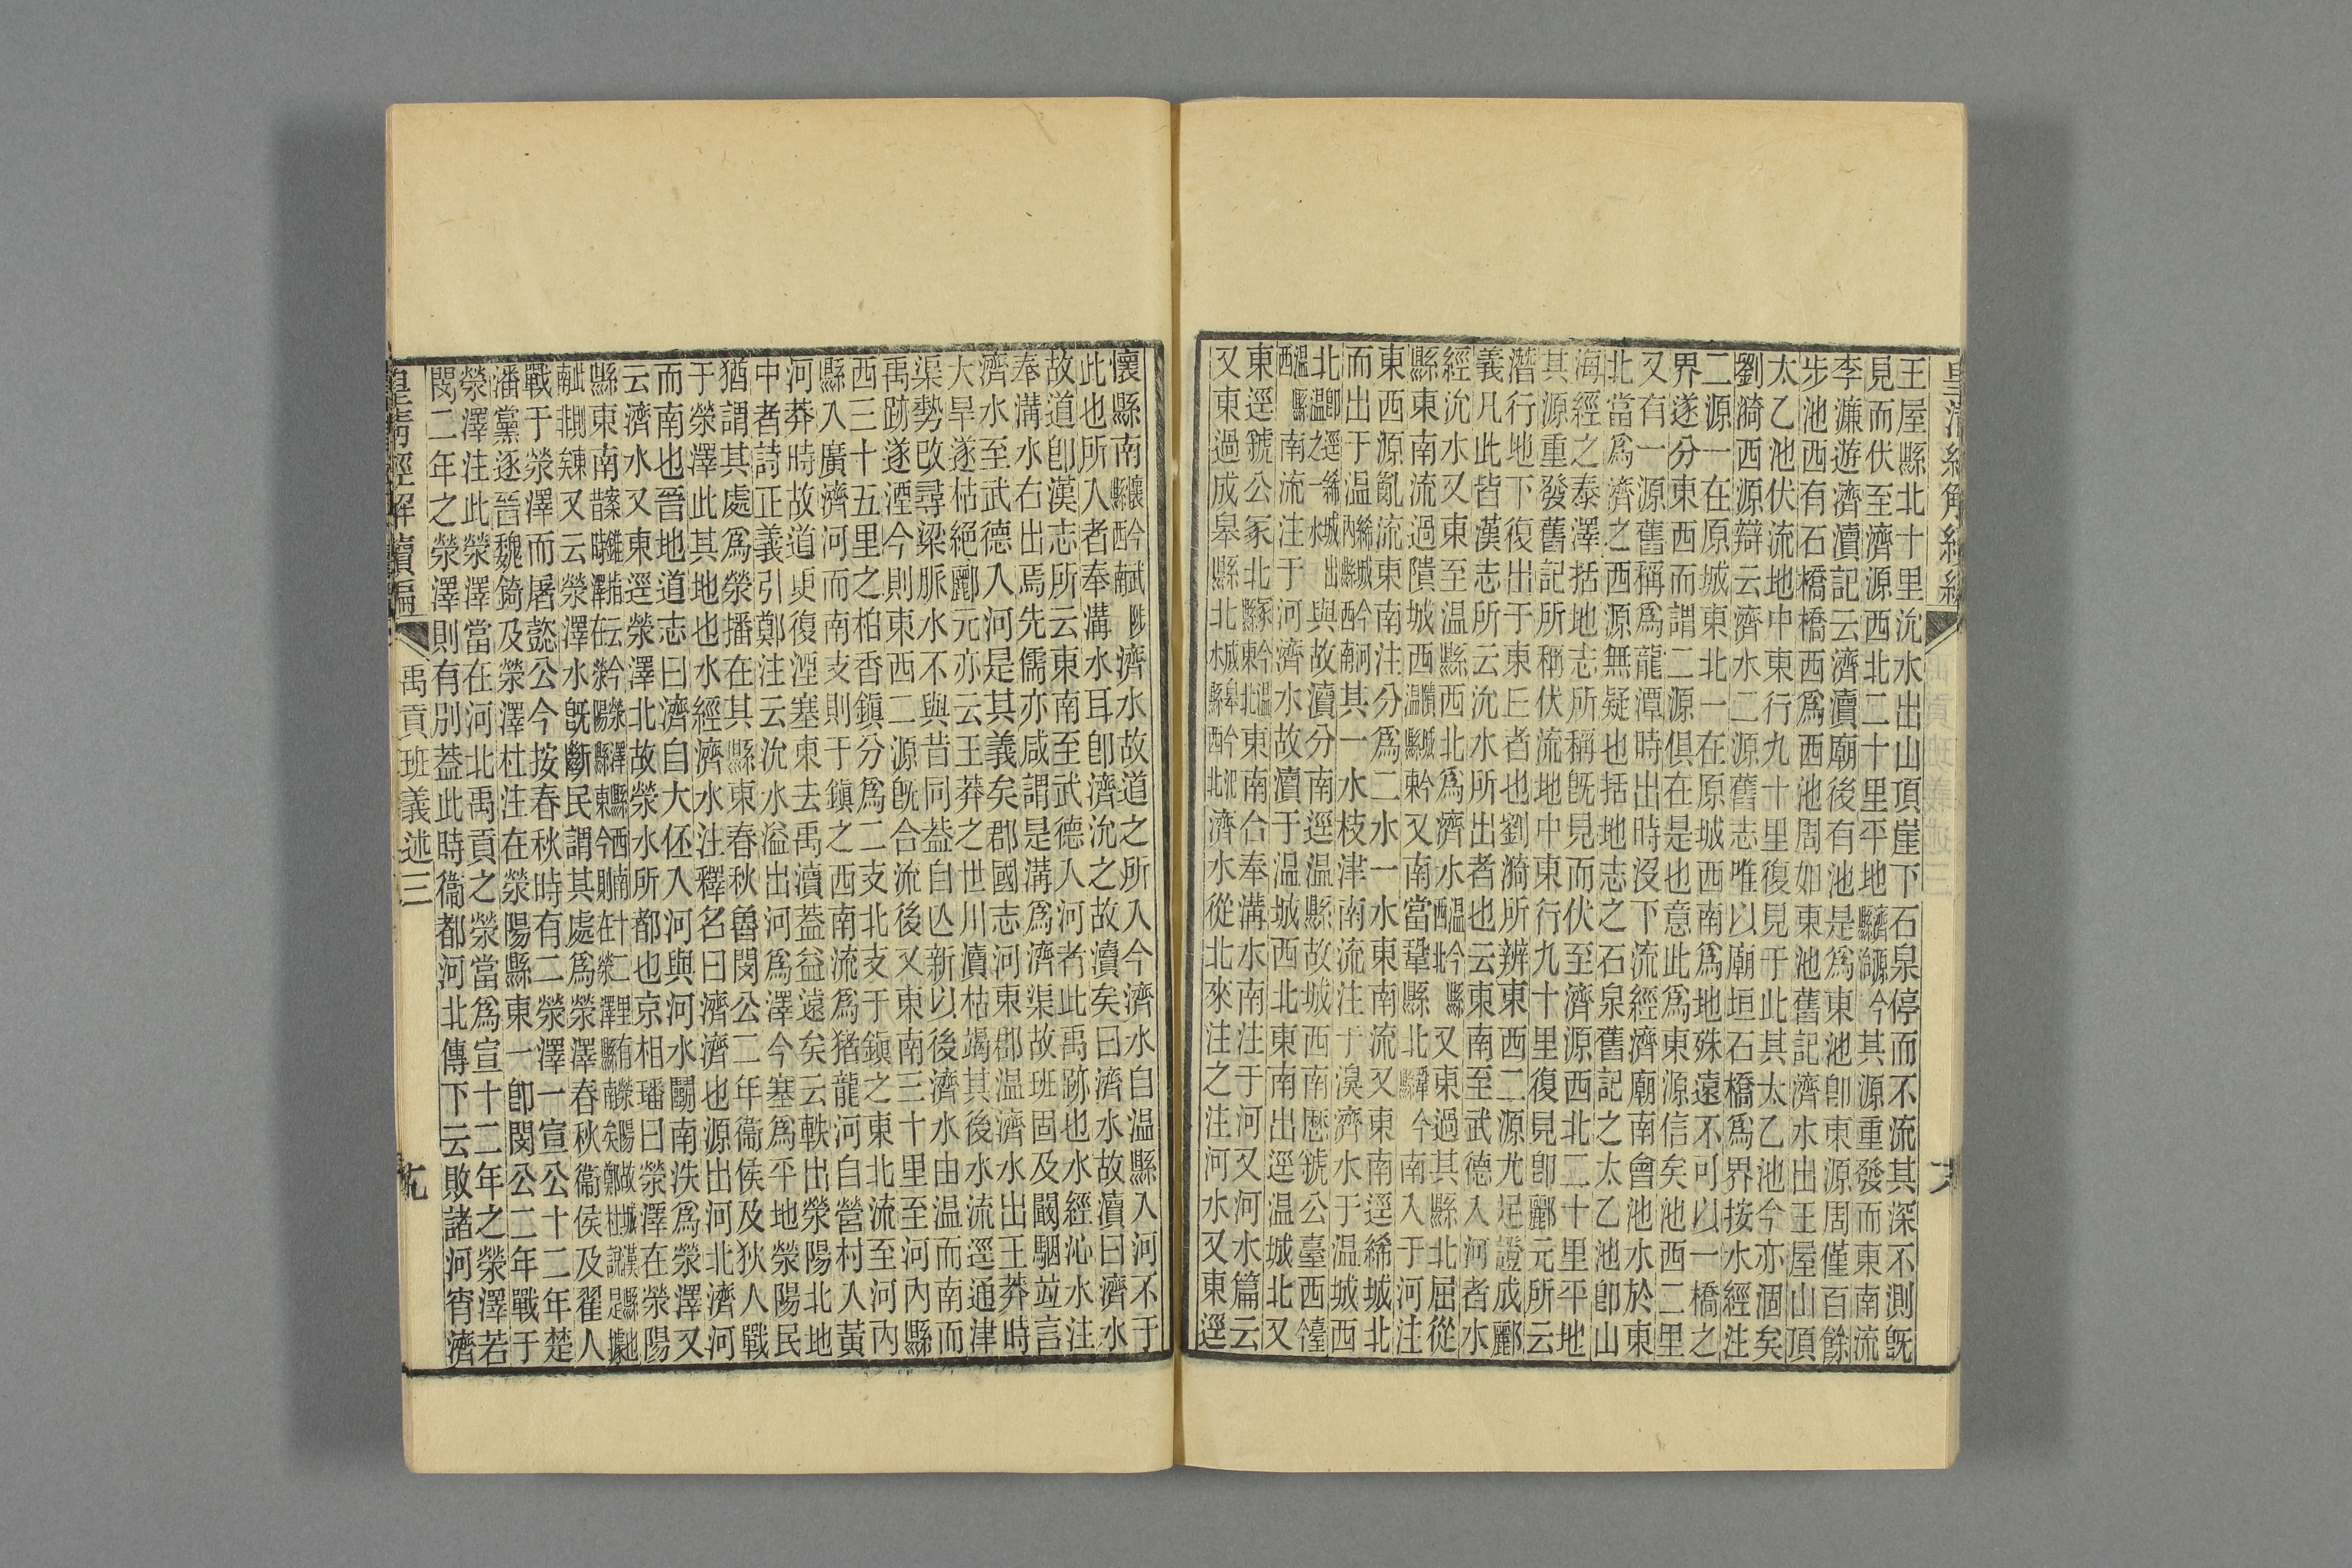 王屋縣北十里沇水出山頂崖下石泉停而不流其深不測旣
見而伏至濟源西北二十里平地濟源縣治今其源重發而東南流
李濂遊濟瀆記云濟瀆廟後有池是爲東池卽東源周僅百餘
步池西有石橋橋西爲西池周如東池舊記濟水出王屋山頂
太乙池伏流地中東行九十里復見于此其太乙池今亦涸矣
劉漪西源辯云濟水二源舊志唯以廟垣石橋爲界按水經注
二源一在原城東北一在原城西南爲地殊遠不可以一橋之
界遂分東西而謂二源俱在是也意此爲東源信矣池西二里
又有一源舊稱爲龍潭時出時沒下流經濟廟南會池水於東
北當爲濟之西源無疑也括地志之石泉舊記之太乙池卽山
海經之泰澤括地志所稱旣見而伏至濟源西北二十里平地
其源重發舊記所稱伏流地中東行九十里復見卽酈元所云
潛行地下復出于東丘者也劉漪所辨東西二源尤足證成酈
義凡此皆漢志所云沇水所出者也云東南至武德入河者水
經沇水又東至温縣西北爲濟水温縣今西北又東過其縣北屈從
縣東南流過隤城西隤城温縣東今又南當鞏縣北鞏縣今南入于河注
東西源亂流東南注分爲二水一水東南流又東南逕絺城北
而出于温絺城河內縣今西南其一水枝津南流注于溴濟水于温城西
北卽温之一絺城水逕出與故瀆分南逕温縣故城西南歷虢公臺西
温縣西南流注于河濟水故瀆于温城西北東南出逕温城北又
東逕虢公冢北冢今温縣東北東南合奉溝水南注于河又河水篇云
又東過成皋縣北成皋今汜水縣西北濟水從北來注之注河水又東逕
懷縣南懷縣今武陟西濟水故道之所入今濟水自温縣入河不于
此也所入者奉溝水耳卽濟沇之故瀆矣曰濟水故瀆曰濟水
故道卽漢志所云東南至武德入河者此禹跡也水經沁水注
奉溝水右出焉先儒亦咸謂是溝爲濟渠故班固及闞駰竝言
濟水至武德入河是其義矣郡國志河東郡温濟水出王莽時
大旱遂枯絕酈元亦云王莽之世川瀆枯竭其後水流逕通津
渠勢改尋梁脈水不與昔同葢自亾新以後濟水由温而南而
禹跡遂湮今則東西二源旣合流後又東南三十里至河內縣
西三十五里之柏香鎮分爲二支北支于鎮之東北流至河內
縣入廣濟河而南支則于鎮之西南流爲猪龍河自營村入黃
河莽時故道叓復湮塞東去禹瀆葢益遠矣云軼出滎陽北地
中者詩正義引鄭注云沇水溢出河爲澤今塞爲平地滎陽民
猶謂其處爲滎播在其縣東春秋魯閔公二年衞侯及狄人戰
于滎澤此其地也水經濟水注釋名曰濟濟也源出河北濟河
而南也晉地道志曰濟自大伾入河與河水鬭南泆爲滎澤又
云濟水又東逕滎澤北故滎水所都也京相璠曰滎澤在滎陽
縣東南
又云滎澤水旣斷民謂其處爲滎澤春秋衞侯及翟人
戰于滎澤而屠懿公今按春秋時有二滎澤一宣公十二年楚
潘黨逐晉魏錡及滎澤杜注在滎陽縣東一卽閔公二年戰于
滎澤注此滎澤當在河北禹貢之滎當爲宣十二年之滎澤若
閔二年之滎澤則有別葢此時衞都河北傳下云敗諸河宵濟
皇清經解續編
禹貢班義述三